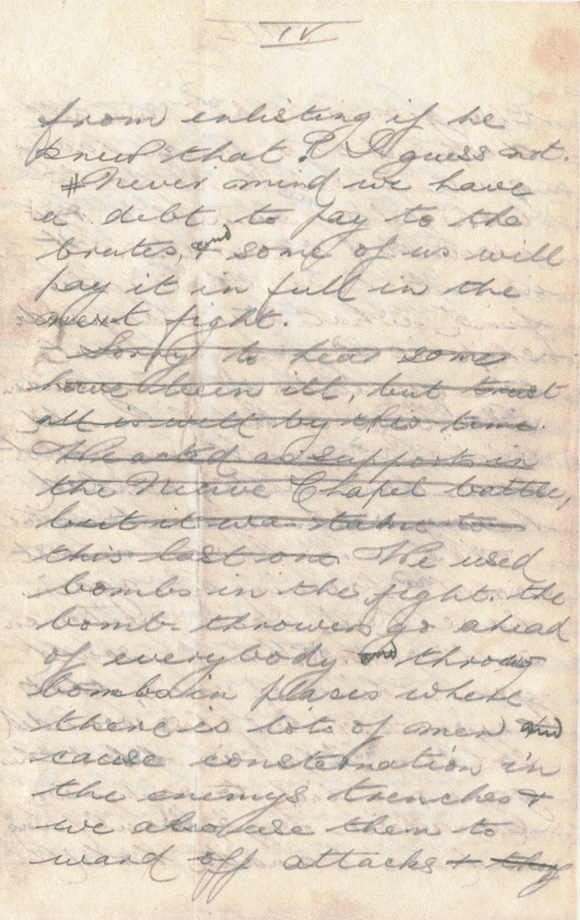 IV
from enlisting if he
knew that? I guess not.
# Never mind we have
a debt to pay to the
brutes, & and some of us will
pay it in full in the
next fight.
Sorry to hear some
have been ill, but trust
all is well by this time.
We acted as supports in
the Neuve Chapel battle,
but it was tame to
this last one. We used
bombs in the fight. the
bomb-throwers go ahead
of everybody and throwing
bombs in places where
there is lots of men and
cause consternation in
the enemys trenches &
we also use them to
ward off attacks + they